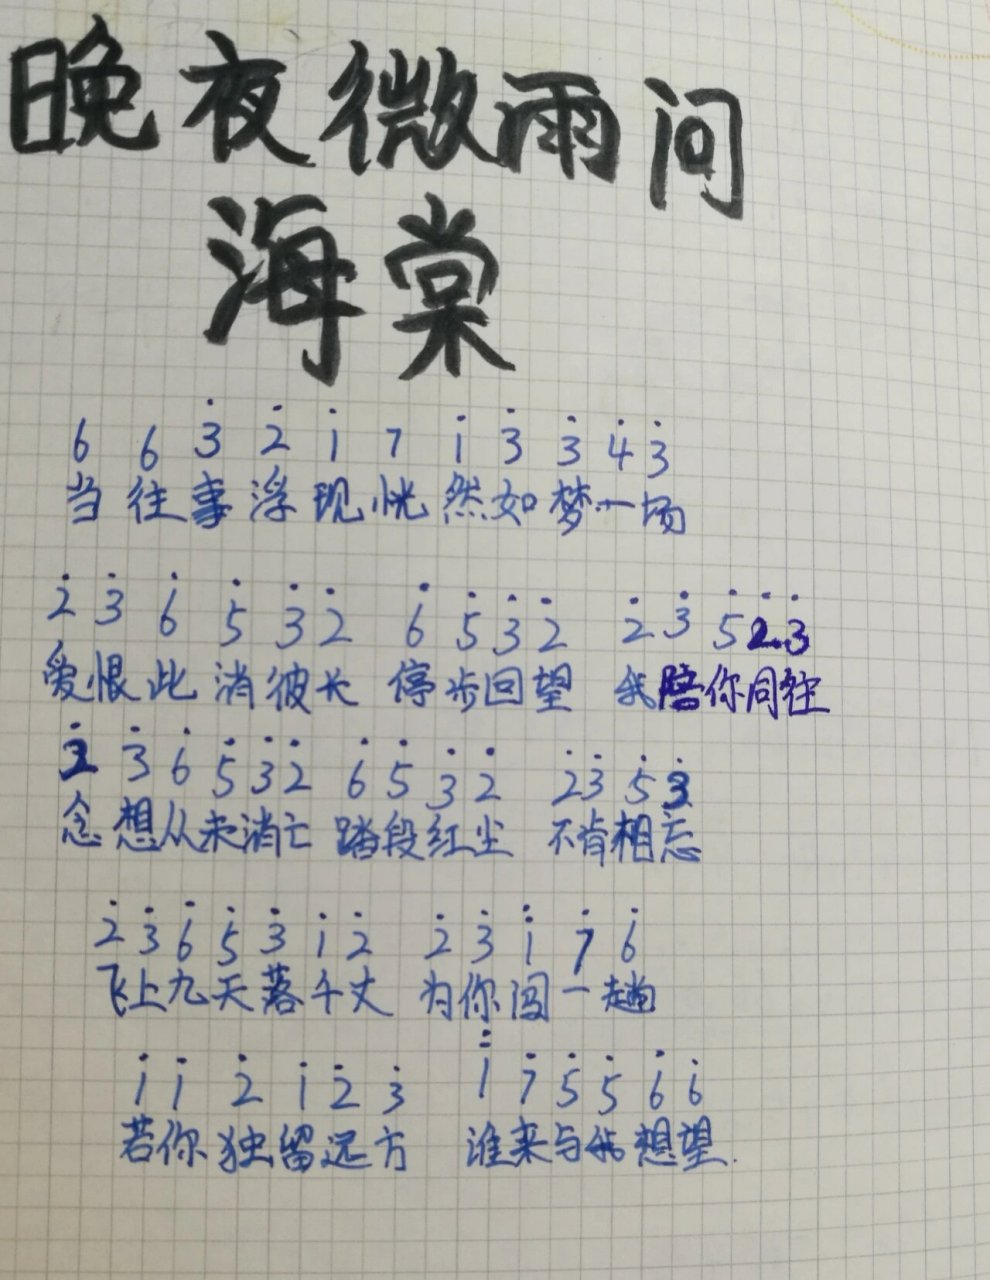 晚夜微雨问
海棠
6 6 3̇ 2̇ 1̇ 7 1̇ 3̇ 3̇ 4̇ 3̇
当往事浮现恍然如梦一场
2̇ 3̇ 6̇ 5̇ 3̇ 2̇ 6̇ 5̇ 3̇ 2̇ 2̇ 3̇ 5̇ 2̇ 3̇
爱恨此消彼长 停步回望 我陪你同往
2̇ 3̇ 6̇ 5̇ 3̇ 2̇ 6̇ 5̇ 3̇ 2̇ 2̇ 3̇ 5̇ 3̇
念想从未消亡 踏段红尘 不肯相忘
2̇ 3̇ 6̇ 5̇ 3̇ 1̇ 2̇ 2̇ 3̇ 1̈ 7̇ 6̇
飞上九天落千丈 为你闯一趟
1̇ 1̇ 2̇ 1̇ 2̇ 3̇ 1̈ 7̇ 5̇ 5̇ 6̇ 6̇
若你独留远方 谁来与我想望.